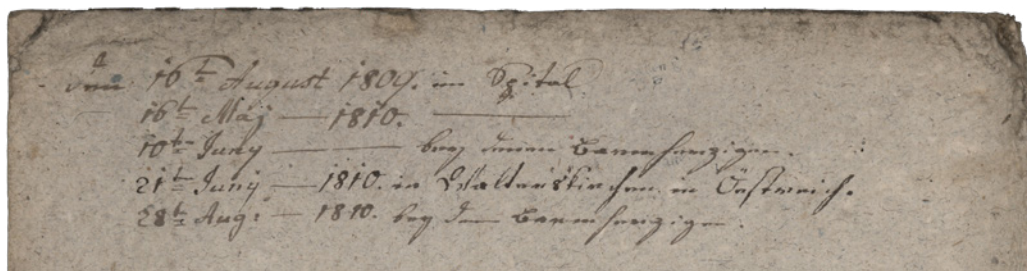 den 16t August 1809. im Spital
16t Máÿ — 1810. —
10t Juny — beÿ denen Barmherzigen.
21t Junÿ — 1810. in Walterskirchen in Oestreich.
28t Aug: — 1810. beÿ den Barmherzigen.